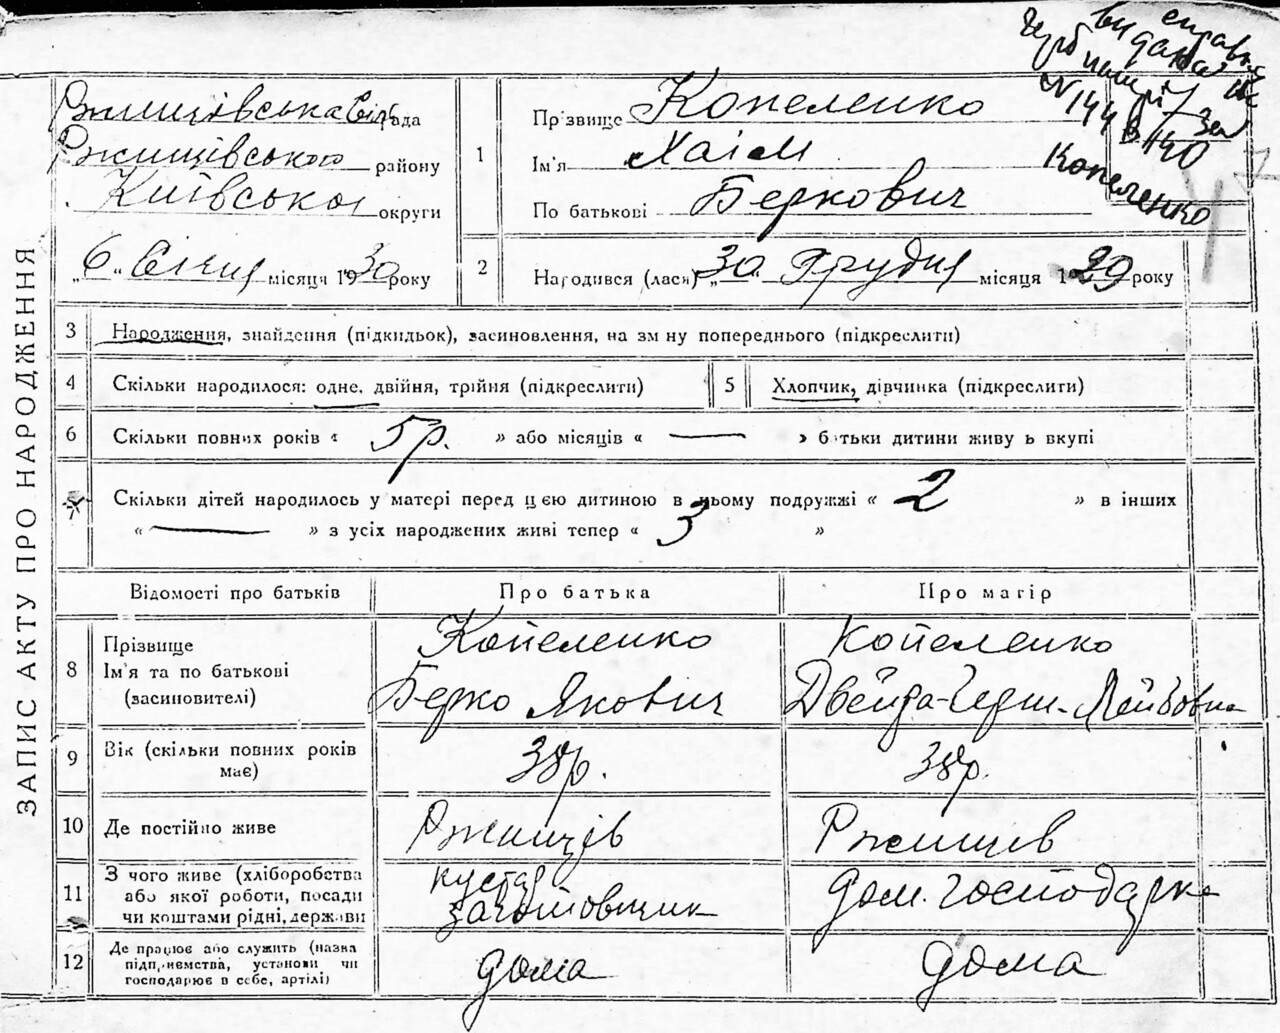 ЗАПИС АКТУ ПРО НАРОДЖЕННЯ
видана
№ 144 в 140
Копеленко
Ржищівська сільрада
Ржищівського району
Київської округи
"6" Січня місяця 1930 року
1
Прізвище Копеленко
Ім'я Хаім
По батькові Беркович
2
Народився (лася) "30" Грудня місяця 1929 року
3 Народження, знайдення (підкидьок), засиновлення, на зміну попереднього (підкреслити)
4 Скільки народилося: одне, двійня, трійня (підкреслити) 5 Хлопчик, дівчинка (підкреслити)
6 Скільки повних років « 5 р. » або місяців « — » батьки дитини живуть вкупі
7 Скільки дітей народилось у матері перед цією дитиною в цьому подружжі « 2 » в інших
« — » з усіх народжених живі тепер « 3 »
Відомості про батьків Про батька Про матір
8 Прізвище Копеленко Копеленко
Ім'я та по батькові Берко Якович Двейра-Герш-Лейбовна
(засиновителі)
9 Вік (скільки повних років 38 р. 38 р.
має)
10 Де постійно живе Ржищів Ржищев
11 З чого живе (хліборобства кустар дом. господарка
або якої роботи, посади заготовщик
чи коштами рідні, держави
12 Де працює або служить (назва дома дома
підприємства, установи чи
господарює в себе, артілі)